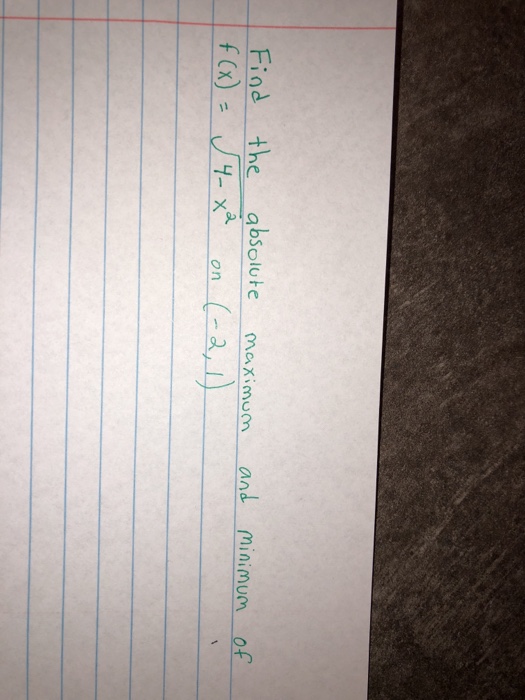 Find the absolute maximum and minimum of
f(x) = √4-x² on (-2,1)